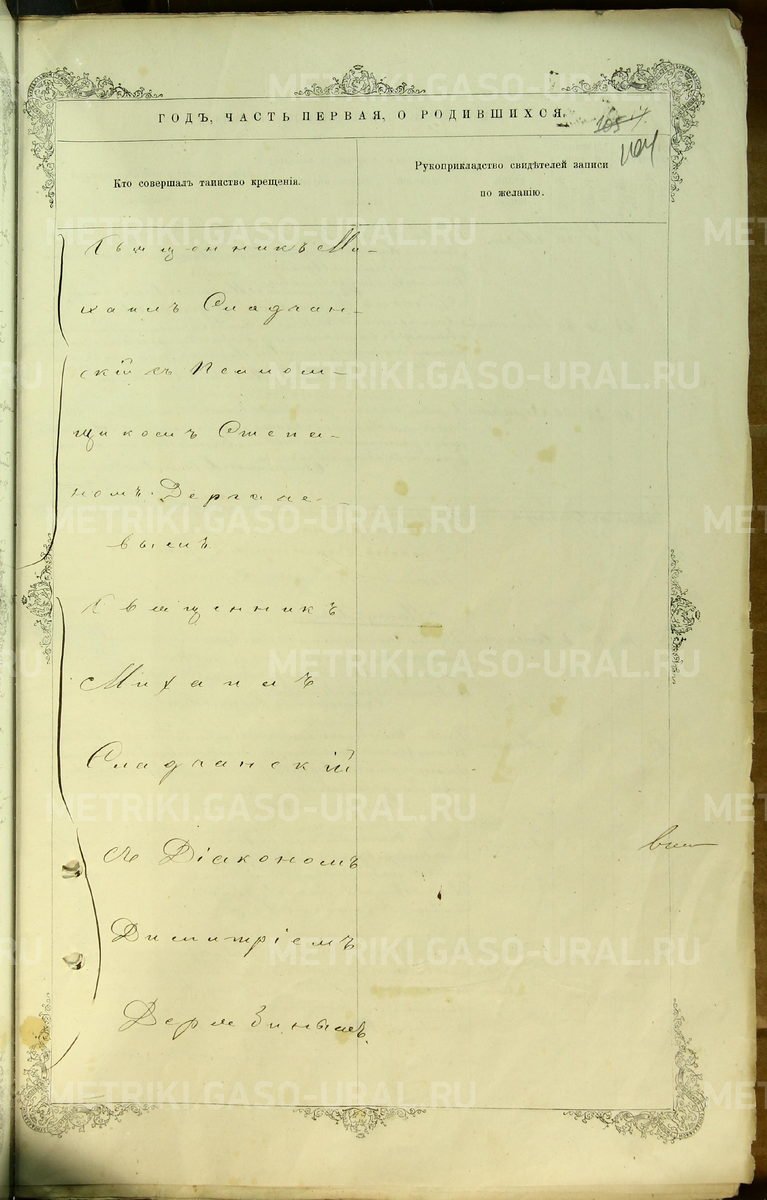 ГОДЪ, ЧАСТЬ ПЕРВАЯ, О РОДИВШИХСЯ.
105
104
Кто совершалъ таинство крещенія.
Рукоприкладство свидѣтелей записи
по желанію.
Священникъ Ми-
хаилъ Сладчан-
скій съ Псалом-
щикомъ Степа-
номъ
вымъ
Священникъ
Михаилъ
Сладчанскій
съ Діакономъ
Димитріемъ
METRIKI.GASO-URAL.RU